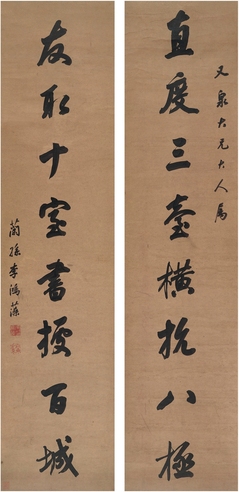 又泉大兄大人属
直度三台橫抗八極
友取十室書擁百城
蘭孫李鴻藻